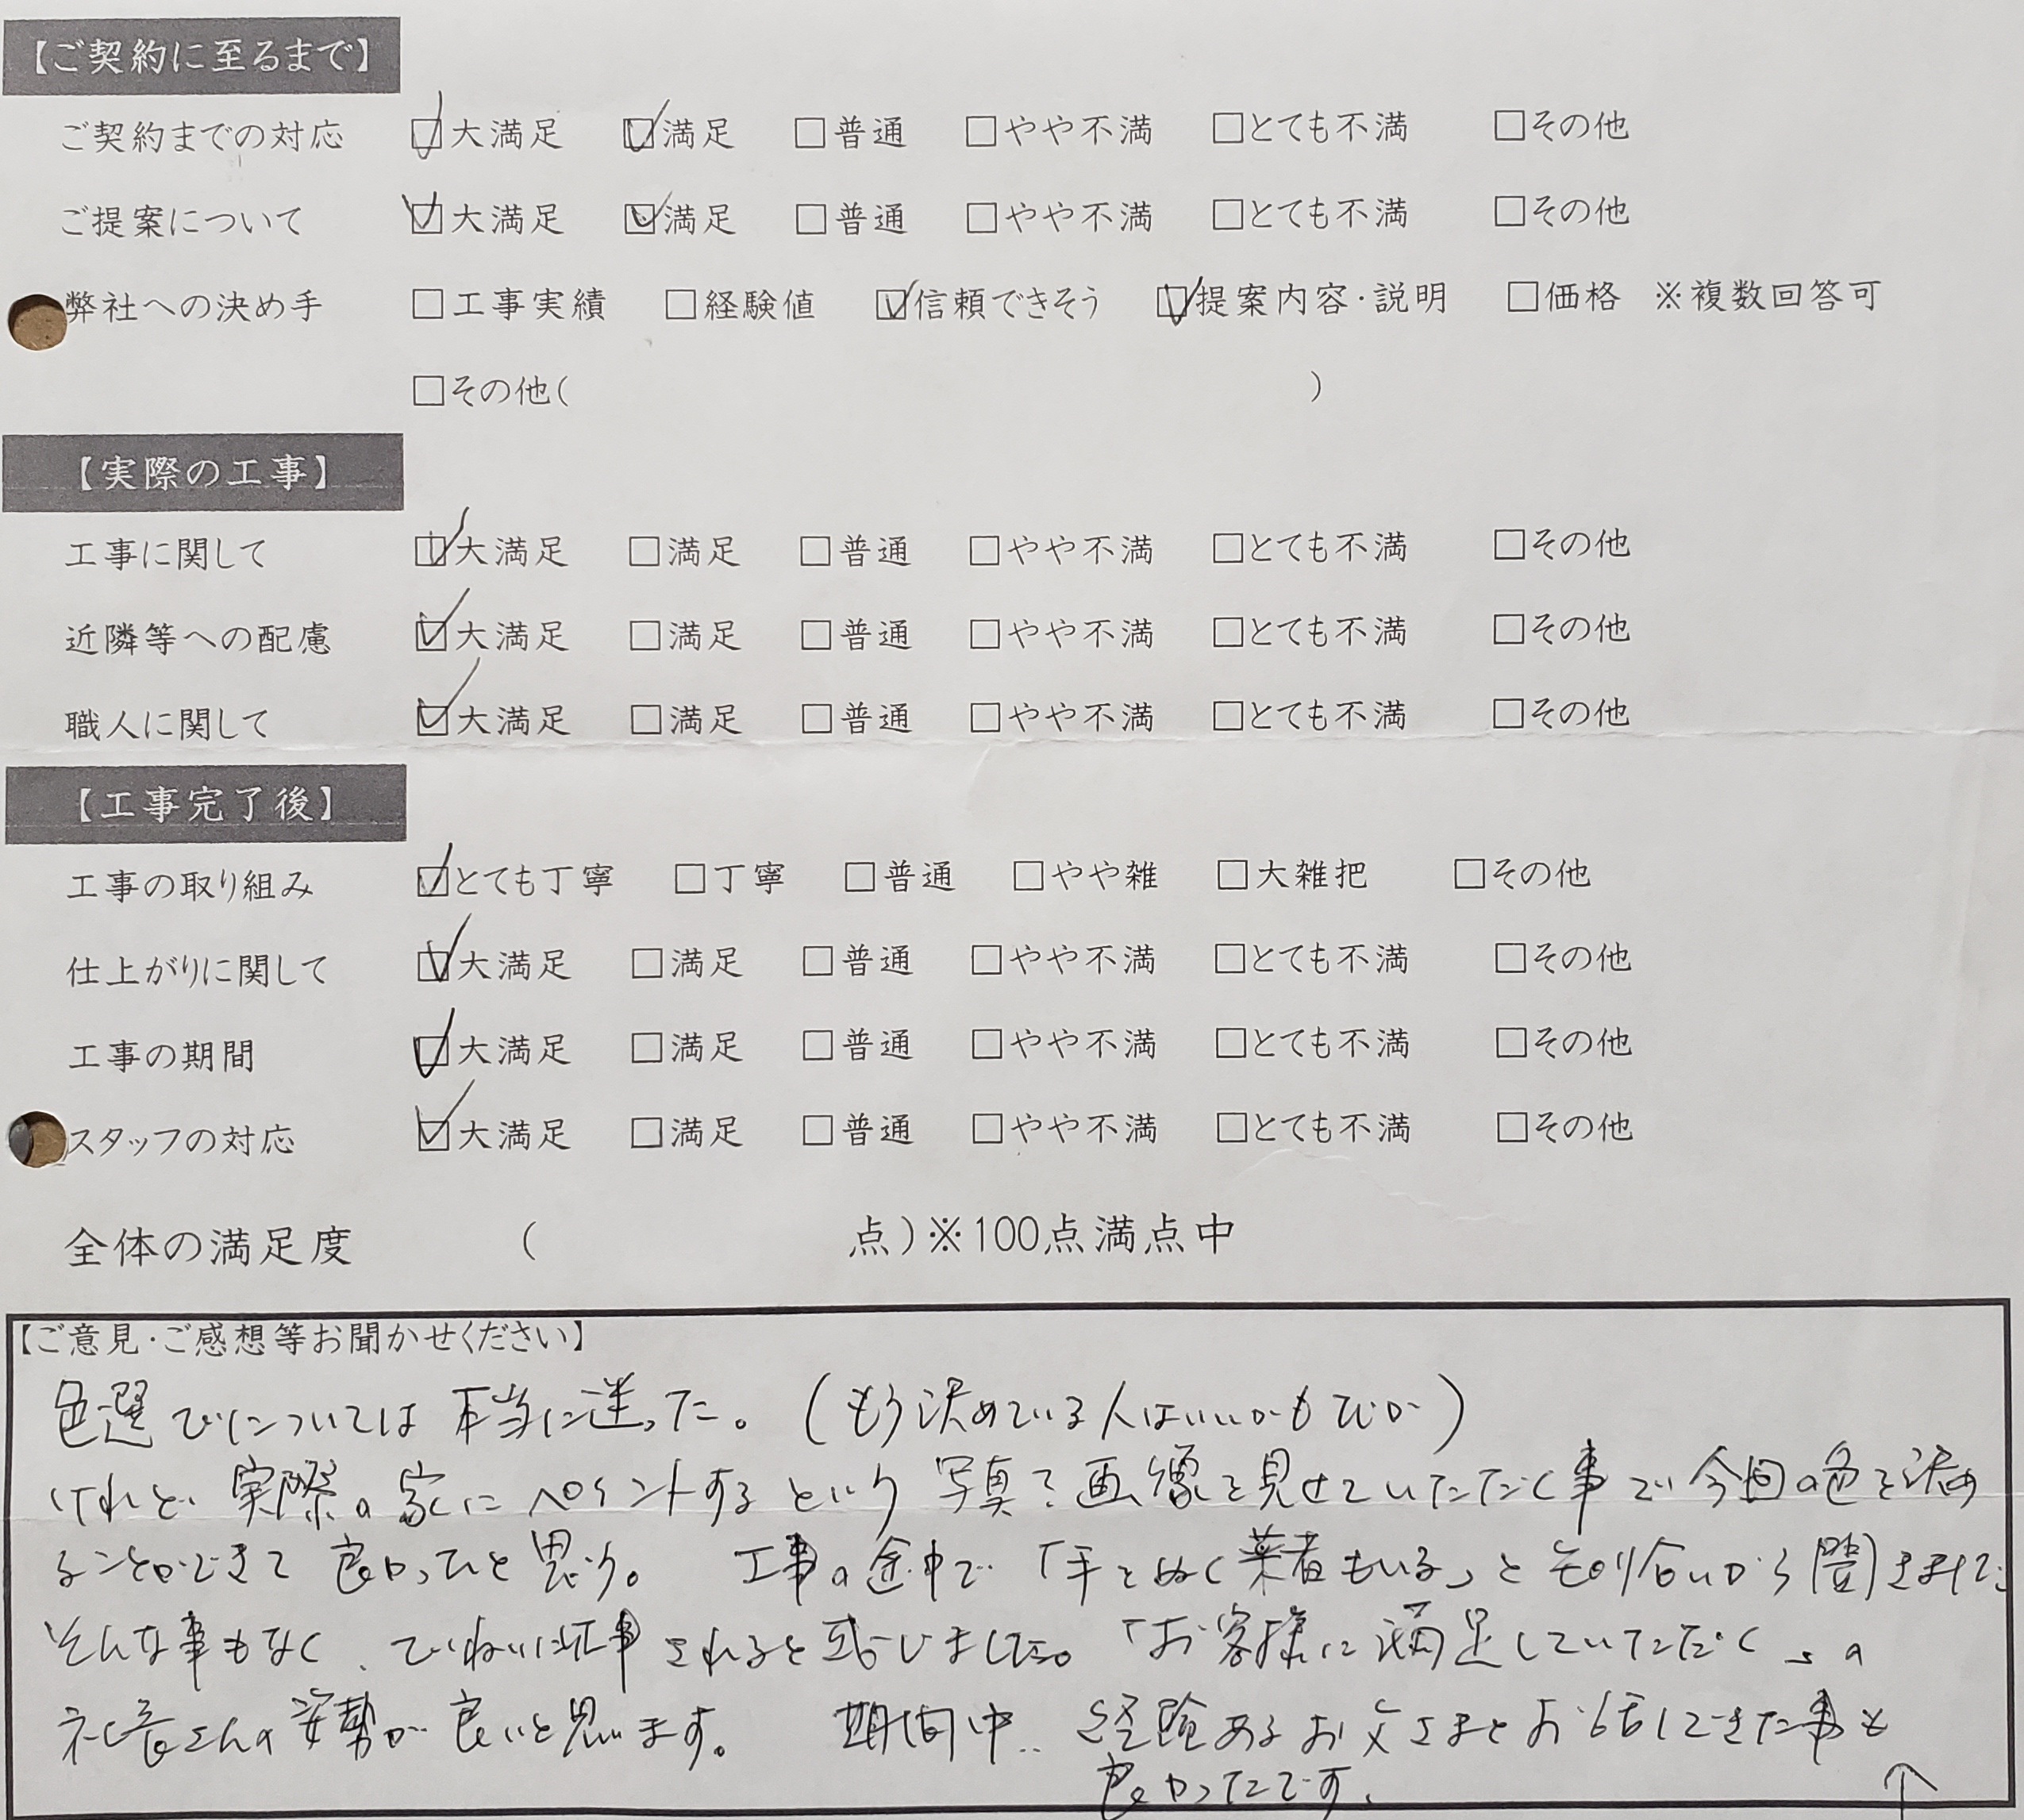 【ご契約に至るまで】
ご契約までの対応 ☑大満足 ☑満足 □普通 □やや不満 □とても不満 □その他
ご提案について ☑大満足 ☑満足 □普通 □やや不満 □とても不満 □その他
弊社への決め手 □工事実績 □経験値 ☑信頼できそう ☑提案内容・説明 □価格 ※複数回答可
□その他( )
【実際の工事】
工事に関して ☑大満足 □満足 □普通 □やや不満 □とても不満 □その他
近隣等への配慮 ☑大満足 □満足 □普通 □やや不満 □とても不満 □その他
職人に関して ☑大満足 □満足 □普通 □やや不満 □とても不満 □その他
【工事完了後】
工事の取り組み ☑とても丁寧 □丁寧 □普通 □やや雑 □大雑把 □その他
仕上がりに関して ☑大満足 □満足 □普通 □やや不満 □とても不満 □その他
工事の期間 ☑大満足 □満足 □普通 □やや不満 □とても不満 □その他
スタッフの対応 ☑大満足 □満足 □普通 □やや不満 □とても不満 □その他
全体の満足度 ( 点)※100点満点中
【ご意見・ご感想等お聞かせください】
色選びについては本当に迷った。(もう決めている人はいいかも)
けれど、実際の家にペイントするという写真?画像を見せていただく事で今回の色を決め
ることができて良かったと思う。 工事の途中で「手をぬく業者もいる」と知り合いから聞きました
そんな事もなく、ていねいに仕事されると感じました。「お客様に満足していただく」の
社長さんの姿勢が良いと思います。 期間中、経験あるお父さまとお話しできた事も
良かったです。